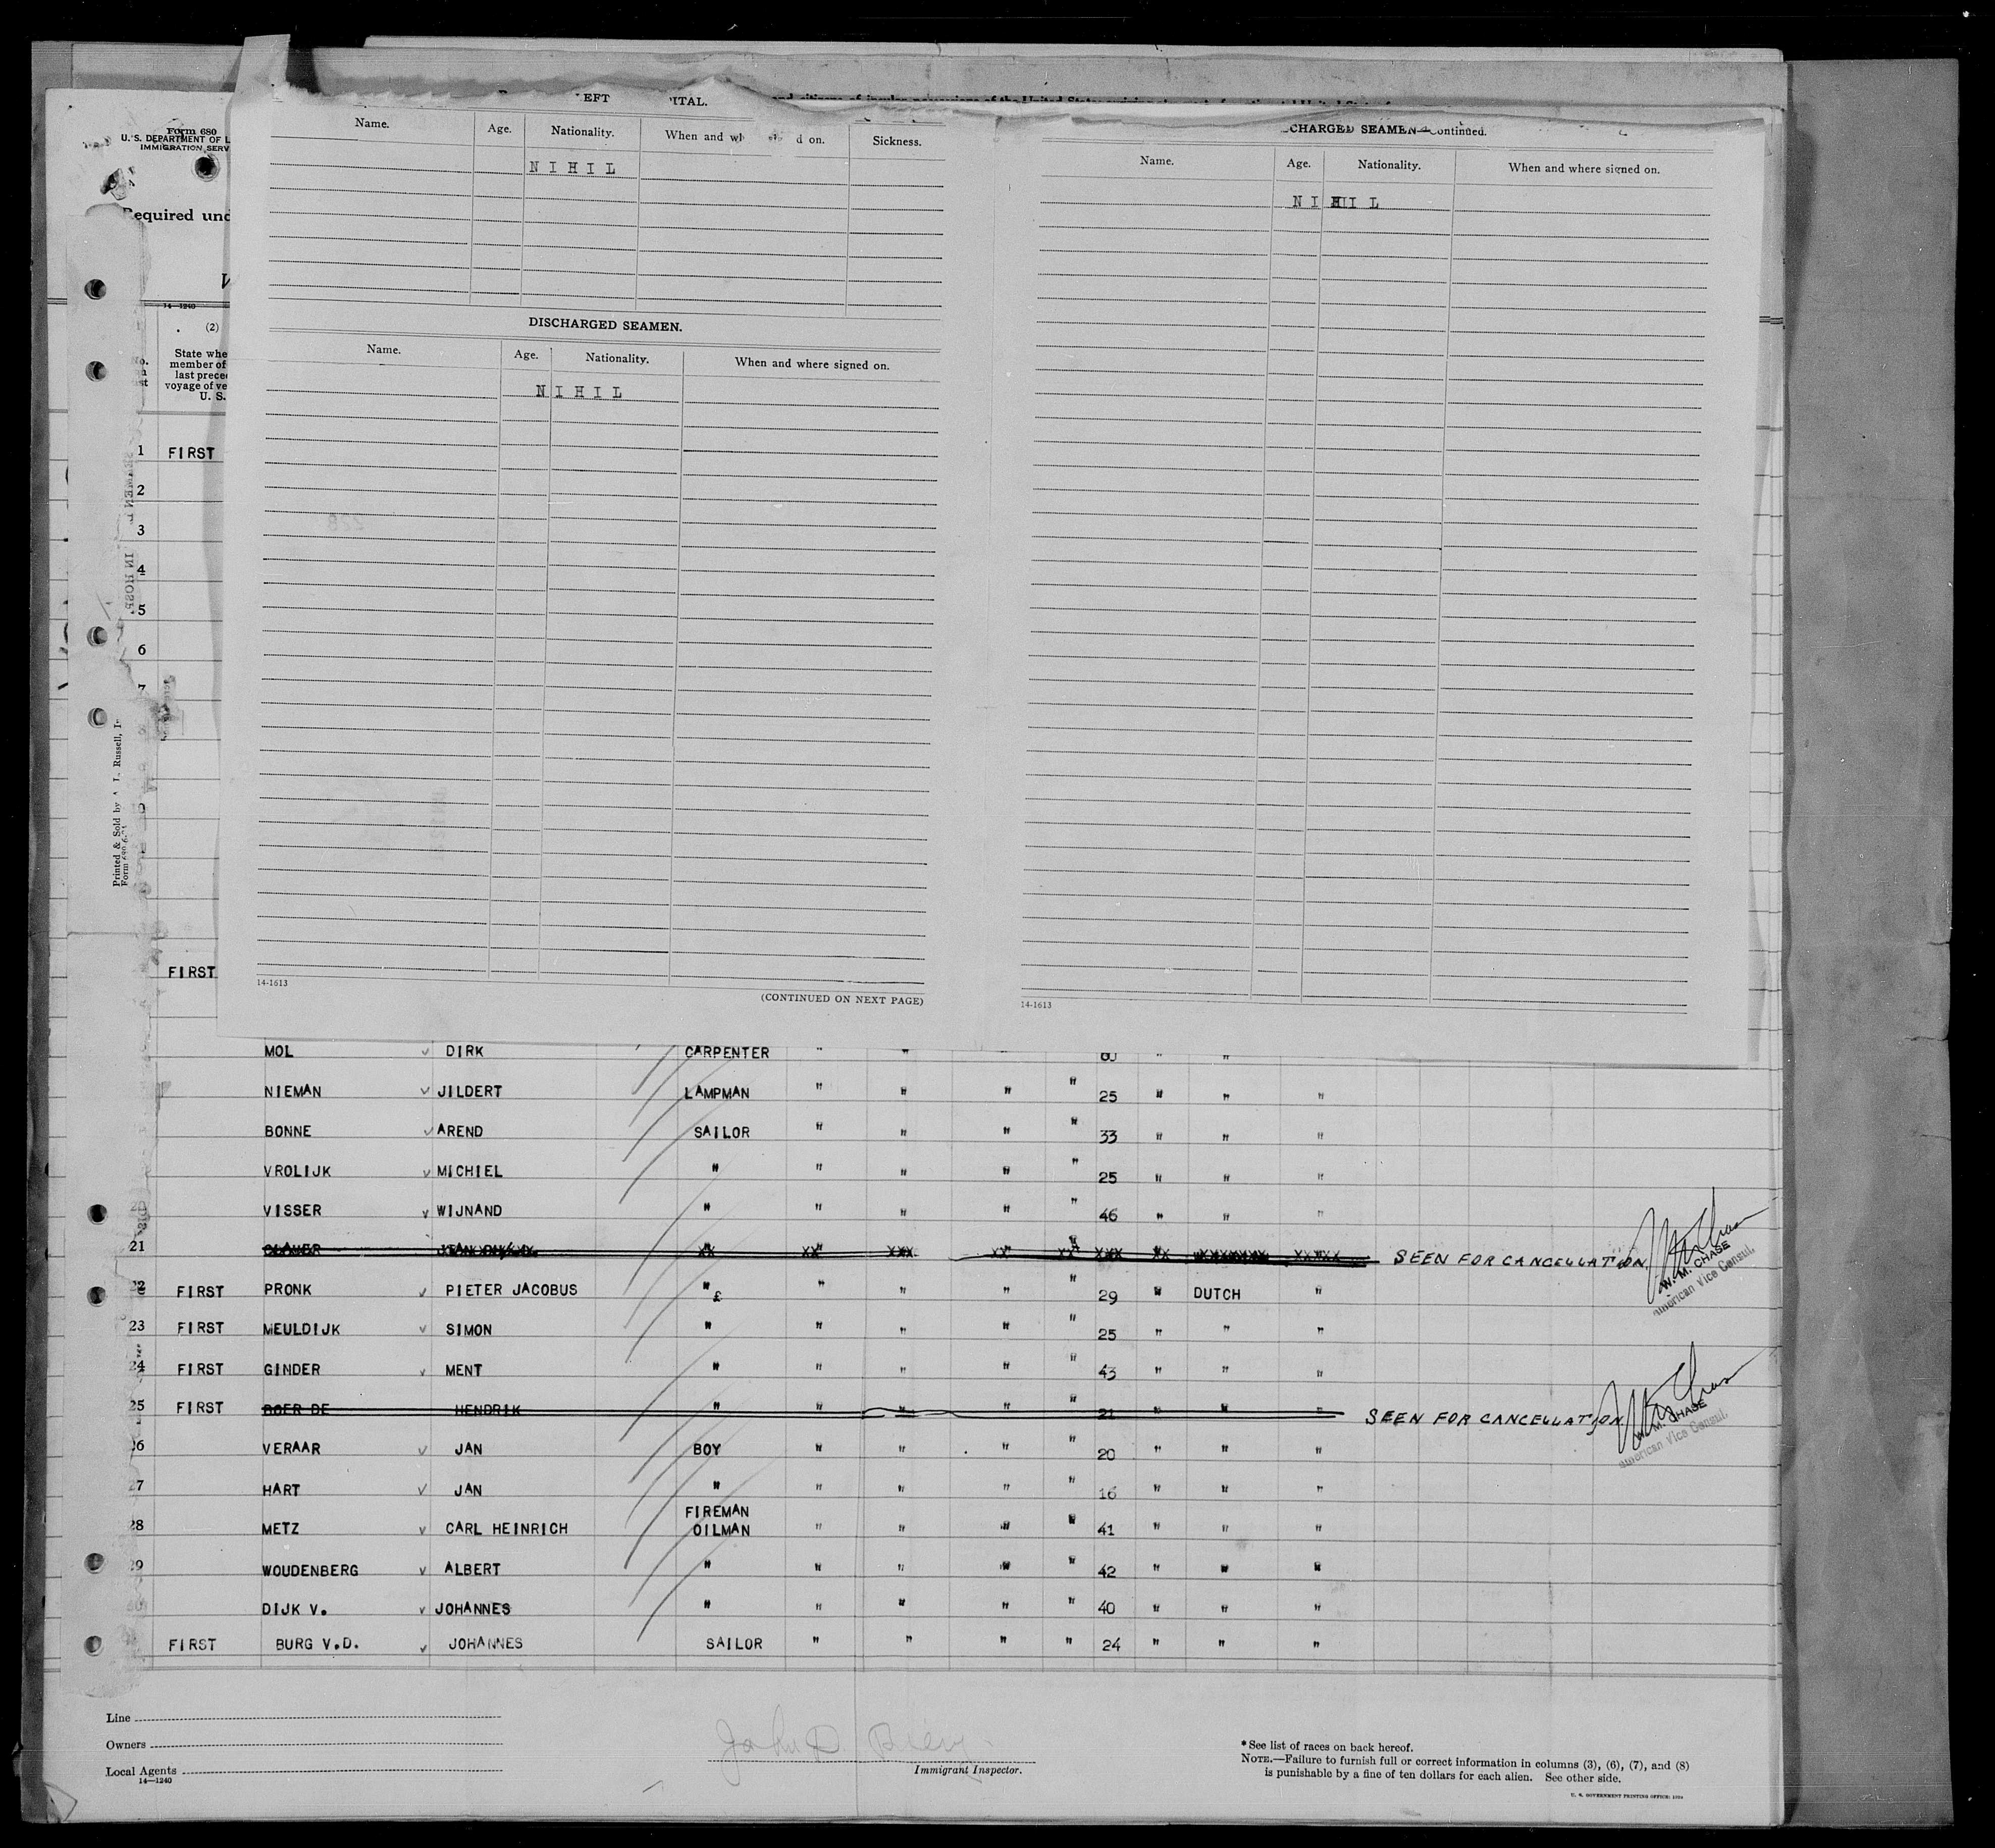 Form 680
U. S. DEPARTMENT OF L
IMMIGRATION SERV
Required und
14—1240
(2)
State whe
member of
last prece
voyage of ve
U. S.
1 FIRST
2
3
4
5
6
7
FIRST
Printed & Sold by Russell,
EFT ITAL.
Name. Age. Nationality. When and wh d on. Sickness.
NIHIL
DISCHARGED SEAMEN.
Name. Age. Nationality. When and where signed on.
NIHIL
14-1613
(CONTINUED ON NEXT PAGE)
CHARGED SEAMEN—Continued.
Name. Age. Nationality. When and where signed on.
NIHIL
14-1613
MOL DIRK CARPENTER " " " "
NIEMAN JILDERT LAMPMAN " " " " 25 " " "
BONNE AREND SAILOR " " " " 33 " " "
VROLIJK MICHIEL " " " " " 25 " " "
VISSER WIJNAND " " " " " 46 " " "
21 SEEN FOR CANCELLATION W. M. CHASE
American Vice Consul.
22 FIRST PRONK PIETER JACOBUS " £ " " " " 29 " DUTCH "
23 FIRST MEULDIJK SIMON " " " " " 25 " " "
24 FIRST GINDER MENT " " " " " 43 " " "
25 FIRST BOER DE HENDRIK " " " " " 21 " " " SEEN FOR CANCELLATION W. M. CHASE
American Vice Consul.
26 VERAAR JAN BOY " " " " 20 " " "
27 HART JAN " " " " " 16 " " "
28 METZ CARL HEINRICH FIREMAN OILMAN " " " " 41 " " "
29 WOUDENBERG ALBERT " " " " " 42 " " "
DIJK V. JOHANNES " " " " " 40 " " "
FIRST BURG V.D. JOHANNES SAILOR " " " " 24 " " "
Line
Owners
Local Agents
14—1240
John D.
Immigrant Inspector.
* See list of races on back hereof.
NOTE.—Failure to furnish full or correct information in columns (3), (6), (7), and (8)
is punishable by a fine of ten dollars for each alien. See other side.
U. S. GOVERNMENT PRINTING OFFICE